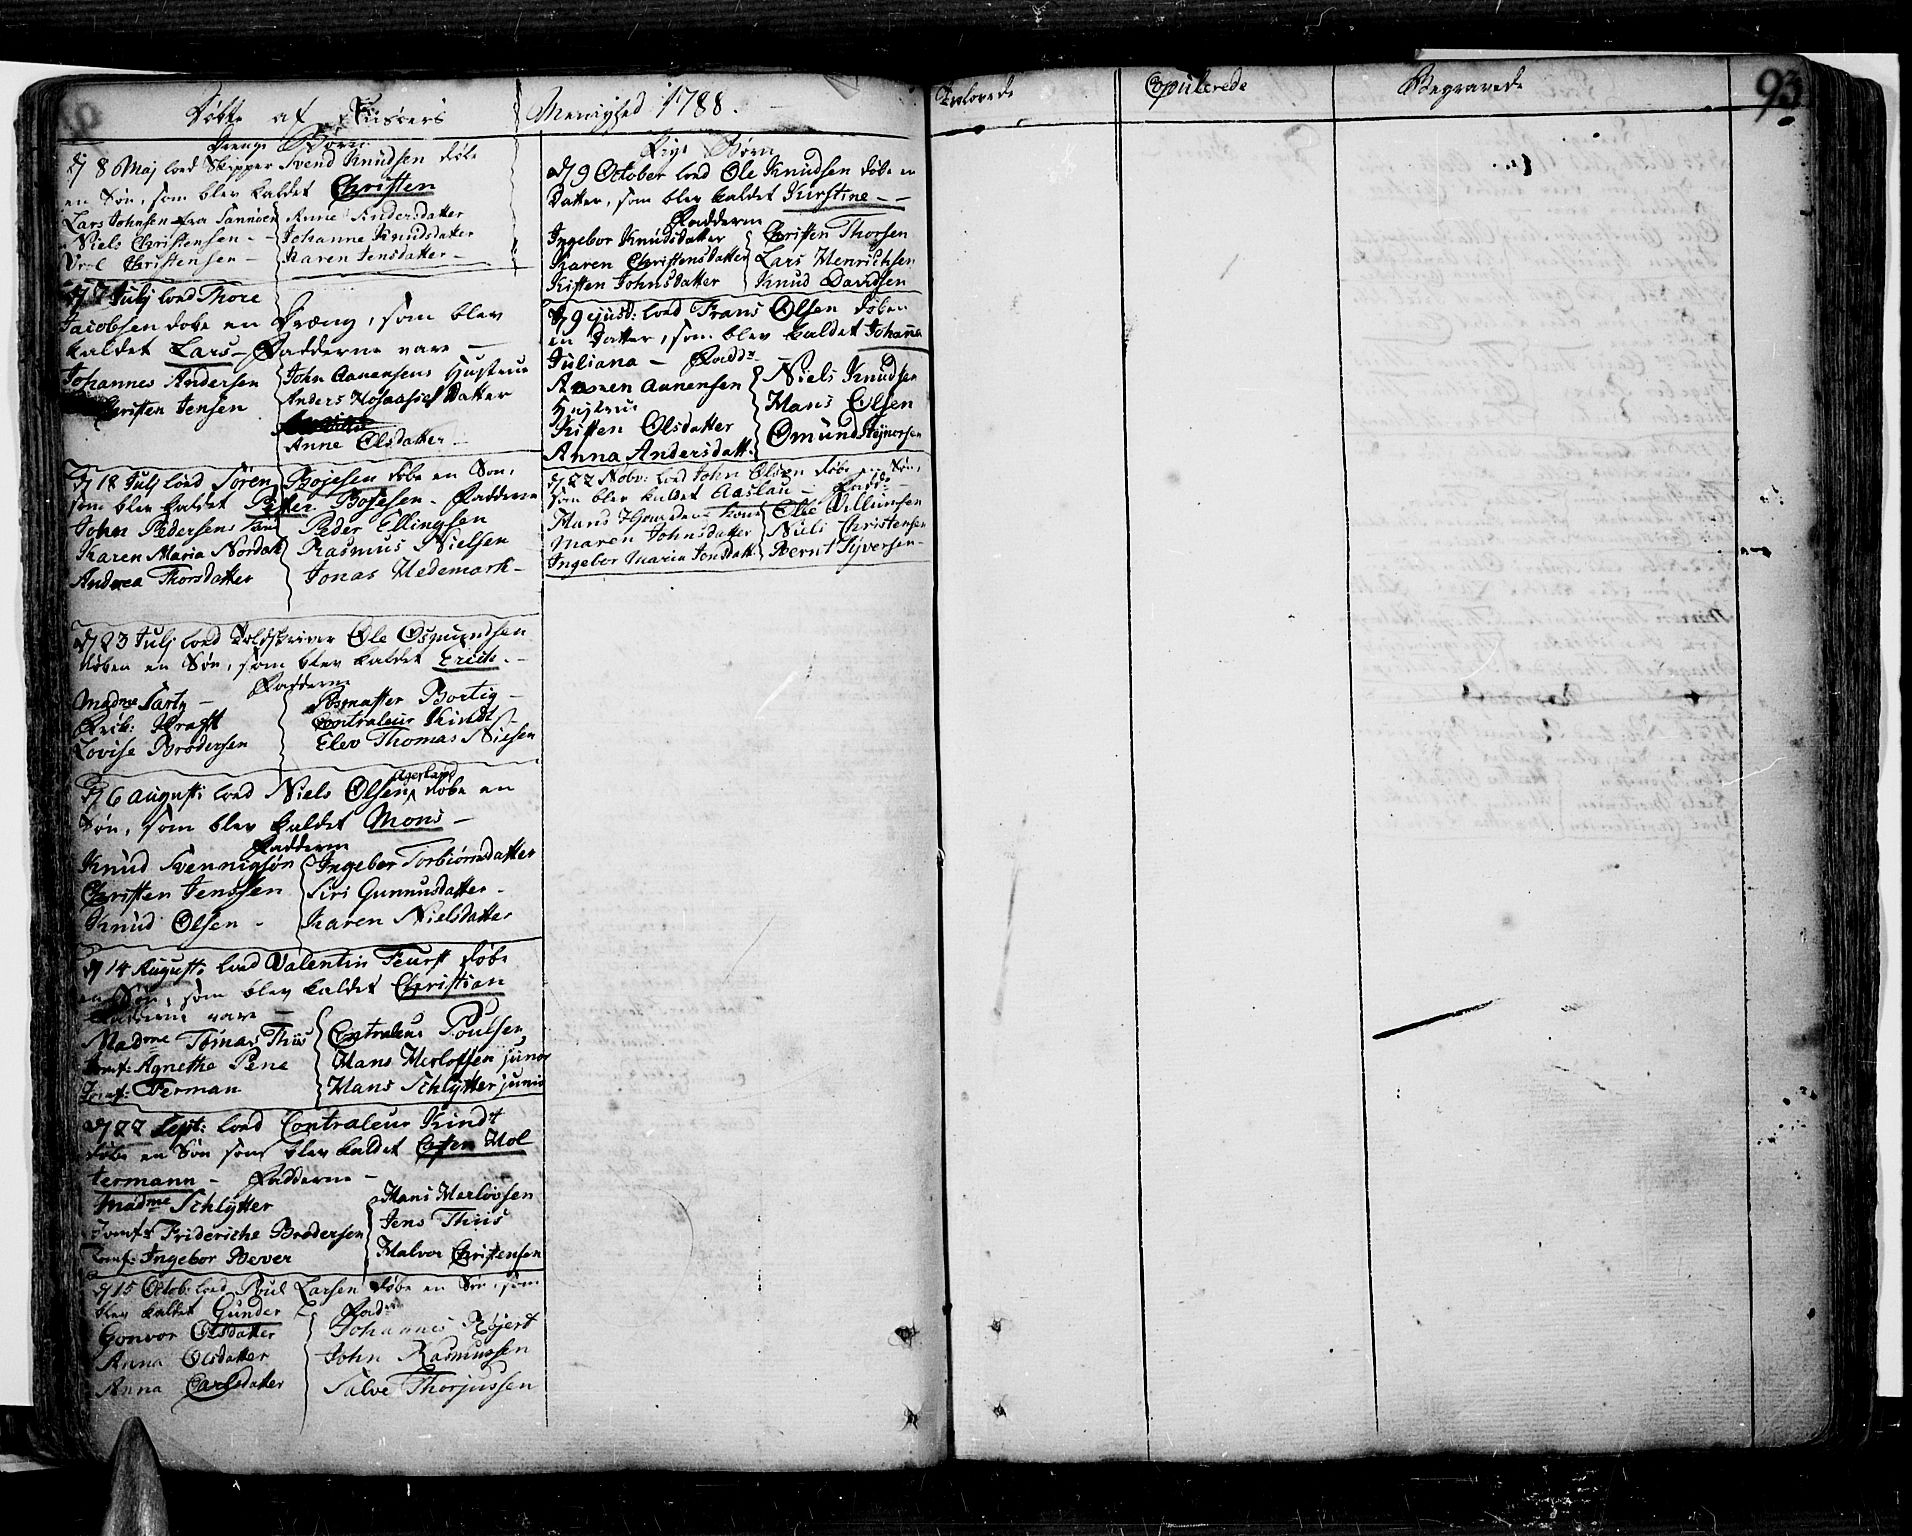 Døbte af Riisøers Menighed 1788.
Drenge Børn
d 8 Maj lod Skipper Svend Knudsen døbe
en Søn, som blev kaldet Christen
Lars Johnsen fra Sannøen Anne Andersdatter
Niels Christensen - Johanne Knudsdatter
Christensen - Karen Jensdatter -
Julj lod Thore
Jacobsen døbe en Dræng, som blev
kaldet Lars - Fadderne vare -
Johannes Andersen John Aanensens Hustrue
Christen Jensen Anders Datter
Anne Olsdatter -
d 18 Julj lod Søren Bojesen døbe en Søn,
som blev kaldet Petter Bojesen - Fadderne
John Pedersens Peder Ellingsen
Karen Maria Nordal Rasmus Nielsen
Andrea Thorsdatter Jonas Hedemark -
d 23 Julj lod Toldskriver Ole Osmundsen
døben en Søn, som blev kaldet Erich. -
Fadderne
Madme - Postmester Bortig -
Frik: Krafft Contraleur Kindt
Lovise Brodersen Elev Thomas Nielsen
d 6 Augusti lod Niels Olsen Agerland døbe en
Søn, som blev kaldet Mons -
Fadderne
Knud Svennigsøn Ingebor Torbiørnsdatter
Christen Jenssen Siri Gunnusdatter -
Knud Olsen - Karen Nielsdatter
d 14 Augusti lod Valentin Feurst døbe
en Søn, som blev kaldet Christian
Fadderne vare -
Madme Tomas Thiis Contraleur Poulsen
Jomf: Agnethe Pene Hans Herlofsen junor
Jomf: Ferman Hans Schlytter junior
d 22 Sept: lod Contraleur Kindt
døbe en Søn som blev kaldet Hol
termann - Fadderne -
Madme Schlytter Hans Herlovsen
Jomfr Friderische Brodersen Jens Thiis
Jomf: Ingebor Bever Halvor Christensen
d 15 Octob: lod Poul Larsen døbe en Søn, som
blev kaldet Gunder Fad
Gonvor Olsdatter Johannes Røjert
Anna Olsdatter John Rasmussen
Anna Carlsdatter Salve Thorjussen
Pige Børn
d 9 October lod Ole Knudsen døbe en
Datter, som blev kaldet Kirstine - -
Fadderne
Ingebor Knudsdatter Christen Thorsen
Karen Christensdatter Lars Henrichsen
Kisten Johnsdatter Knud Davidsen
d 9 ejusd: lod Frans Olsen døben
en Datter, som blev kaldet Johanna
Juliana - Fadd
Aanen Aanensen Niels Knudsen
Hustrue Hans Olsen
Kisten Olsdatter Omund Stejnorsen
Anna Andersdatt.
d 22 Nobr: lod John Olsen døbe en Søn,
som blev kaldet Aaslau - Fadd
Hans Kone Ole Villumsen
Maren Johnsdatter Niels Christensen
Ingebor Maria Jonsdatt Bernt Syversen -
Trolovede
Copulerede
Begravede
93